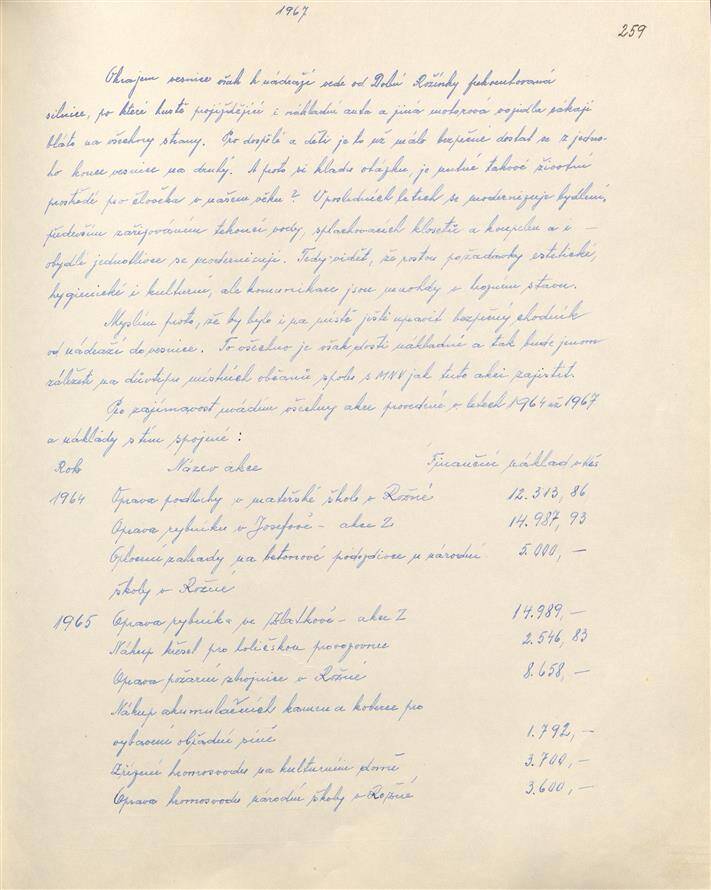 1967
259
Okrajem vesnice však k nádraží vede od Dolní Rožínky frekventovaná
silnice, po které hustě pojíždějící i nákladní auta a jiná motorová vozidla sákají
bláto na všechny strany. Pro dospělé a děti je to už málo bezpečné dostat se z jedno-
ho konce vesnice na druhý. A proto si kladu otázku, je nutné takové životní
prostředí pro člověka v našem věku? V posledních letech se modernizuje bydlení,
především zařizováním tekoucí vody, splachovacích klosetů a koupelen a i —
obydlí jednotlivce se modernizují. Tedy vidět, že rostou požadavky estetické,
hygienické i kulturní, ale komunikace jsou mnohdy v hojném stavu.
Myslím proto, že by bylo i na místě ještě upravit bezpečný chodník
od nádraží do vesnice. To všechno je však dosti nákladné a tak bude jenom
záležeti na důvtipu místních občanů spolu s MNV jak tuto akci zajistit.
Pro zajímavost uvádím všechny akce provedené v letech 1964 až 1967
a náklady s tím spojené:
Rok Název akce Finanční náklad v Kčs
1964 Oprava podlahy v mateřské škole v Rožné 12.313,86
Oprava rybníku v Josefově - akce Z 14.987,93
Oplocení zahrady na betonové podezdívce u národní 5.000,—
školy v Rožné
1965 Oprava rybníka ve Zlatkově - akce Z 14.989,—
Nákup křesel pro holičskou provozovnu 2.546,83
Oprava požární zbrojnice v Rožné 8.658,—
Nákup akumulačních kamen a koberce pro
vybavení obřadní síně 1.792,—
Zřízení hromosvodu na kulturním domě 3.700,—
Oprava hromosvodu národní školy v Rožné 3.600,—